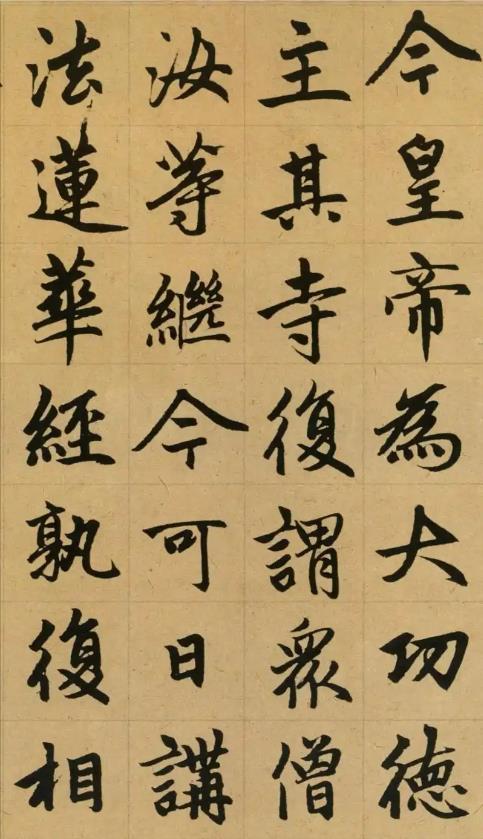 今皇帝為大功德
主其寺復謂眾僧
汝等繼今可日講
法蓮華經孰復相